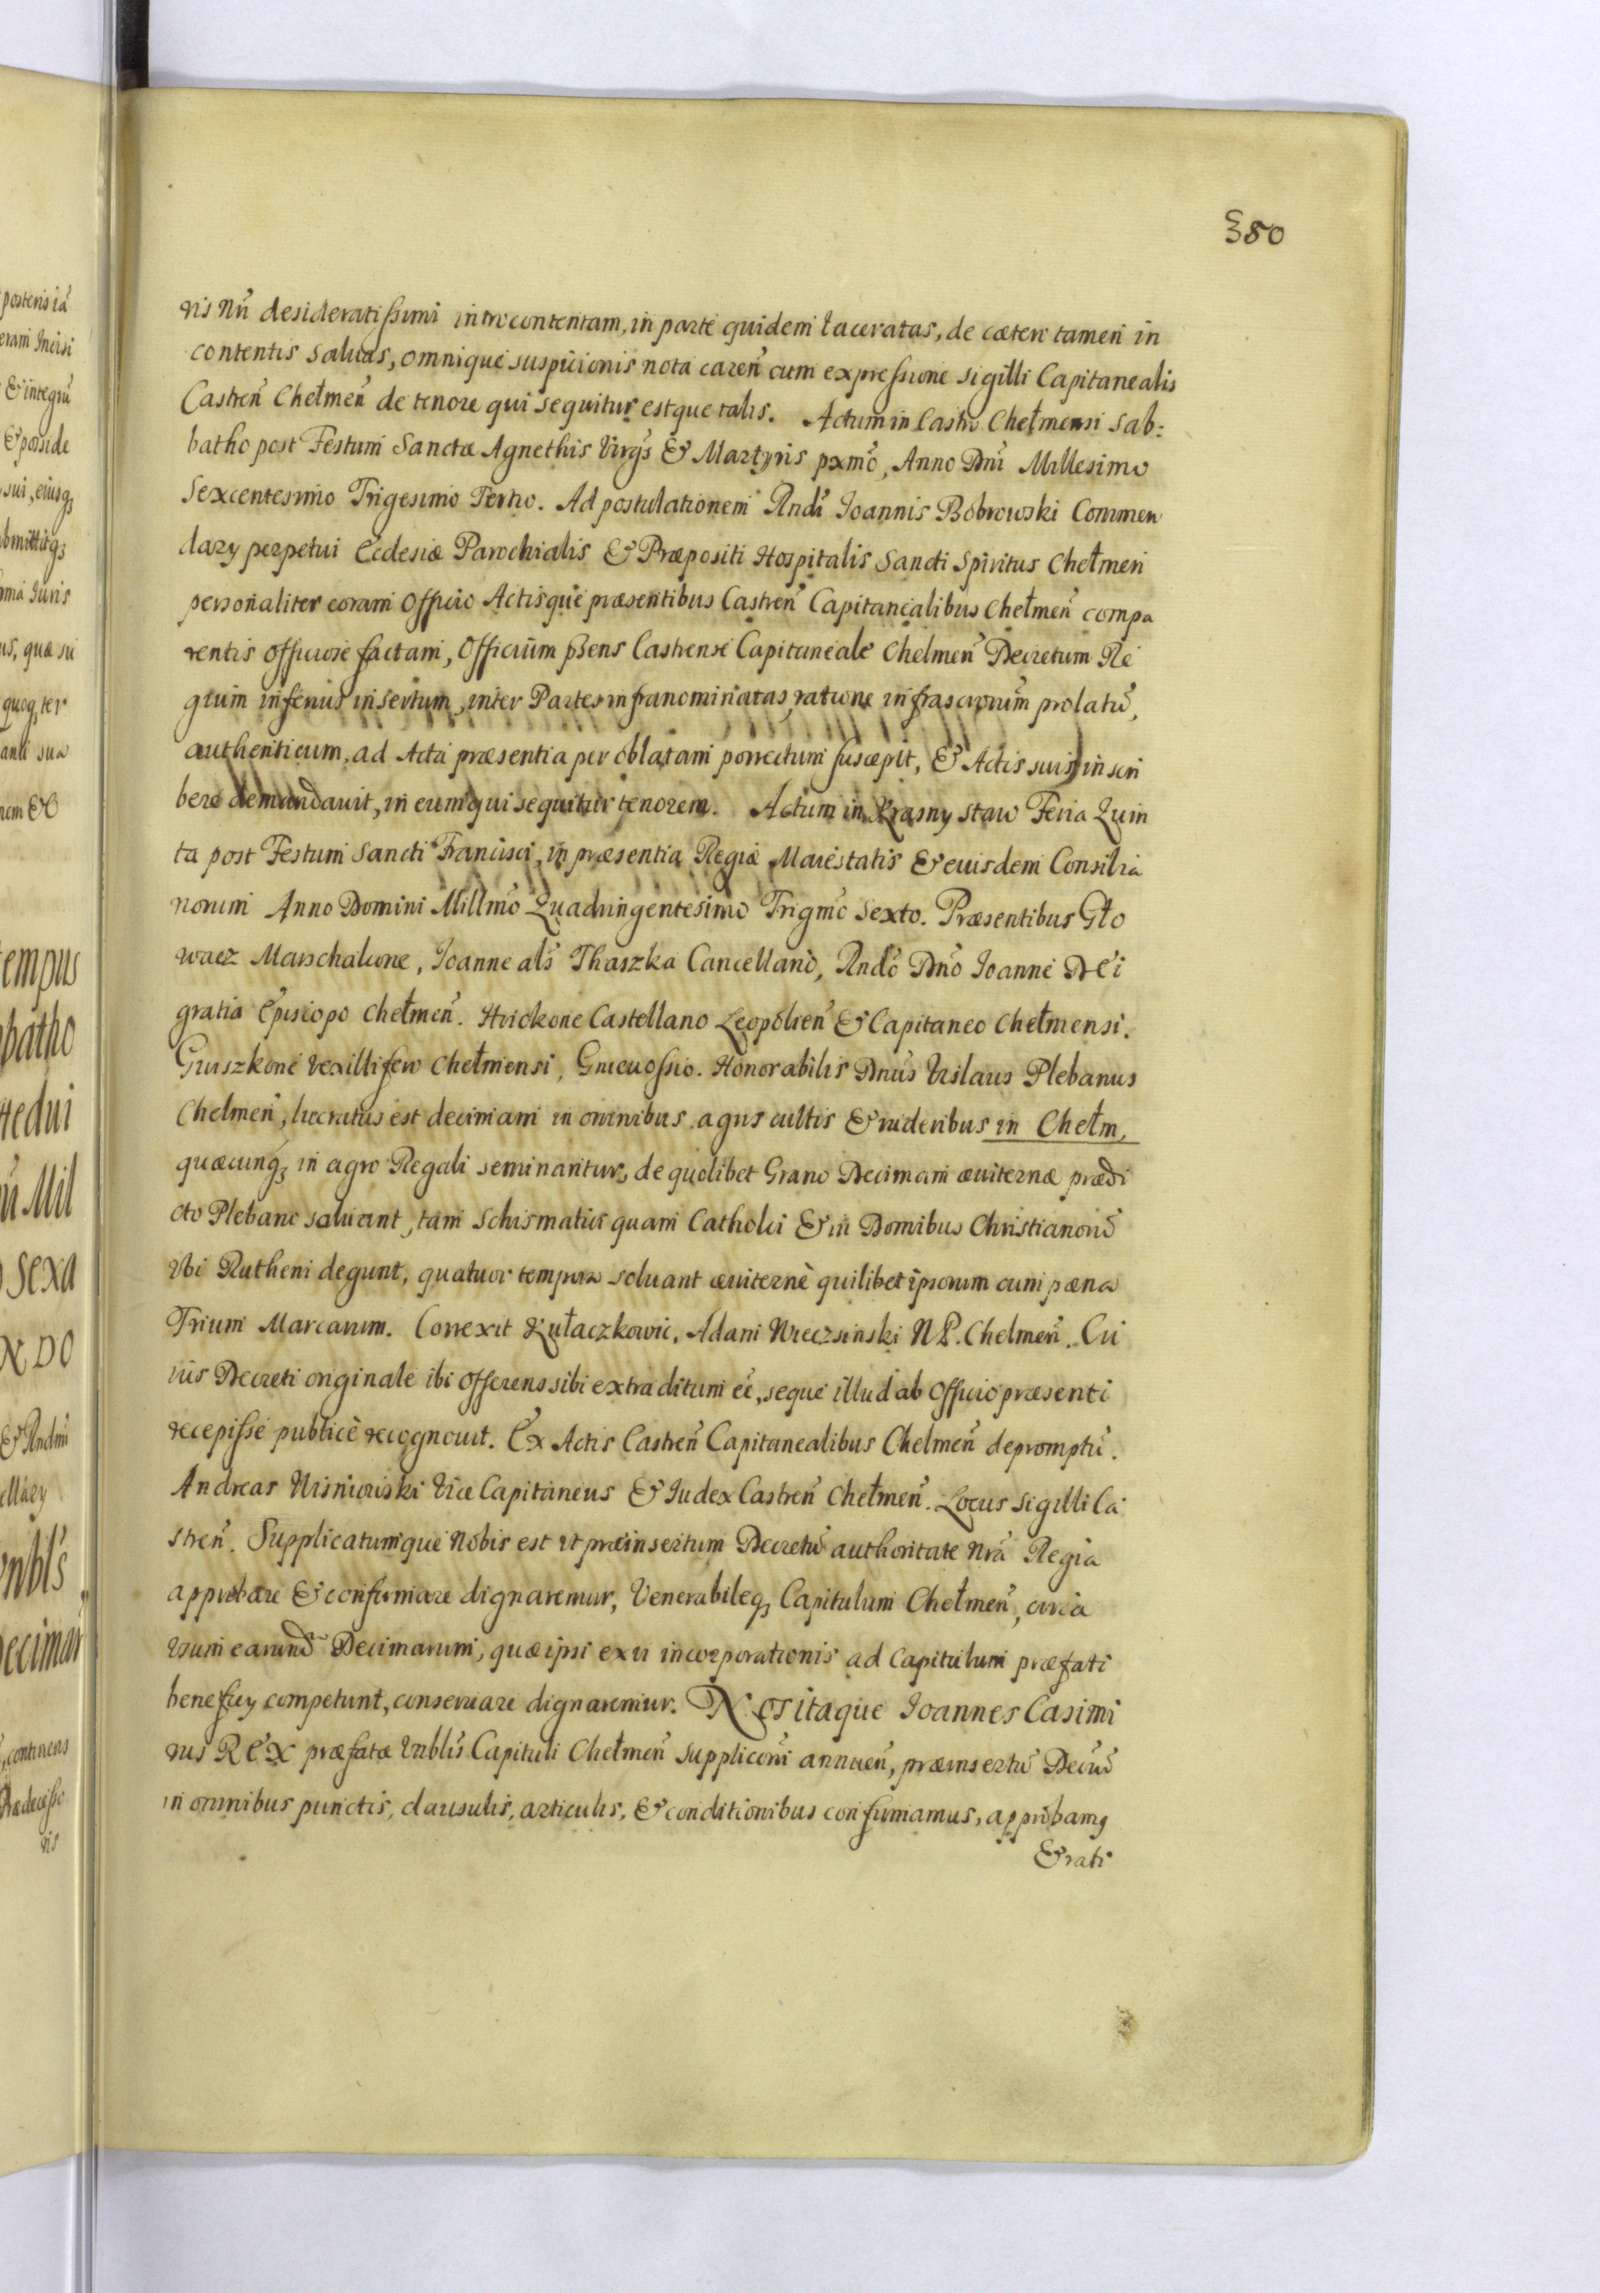 380
ris Nrĩ desideratissimi introcontentam, in parte quidem laceratas, de cætero tamen in
contentis saluas, omnique suspicionis nota careñ cum expressione sigilli Capitanealis
Castreñ Chełmeñ de tenore qui sequitur estque talis. Actum in Castro Chełmensi Sab:
batho post Festum Sanctæ Agnethis Virg̃s & Martyris pxmõ, Anno Dnĩ Millesimo
Sexcentesimo Trigesimo Tertio. Ad postulationem Rndĩ Ioannis Bobrowski Commen
dary perpetui Ecclesiæ Parochialis & Præpositi Hospitalis Sancti Spiritus Chełmeñ
personaliter coram Officio Actisque præsentibus Castreñ Capitanealibus Chełmeñ compa
rentis officiose factam, Officium pñens Castrense Capitaneale Chelmeñ Decretum Re
gium inferius insertum, inter Partes infranominatas, ratione infrascriptorum prolatũ,
authenticum, ad Acta præsentia per oblatam porrectum suscepit, & Actis suis inscri
bere demandauit, in eum qui sequitur tenorem. Actum in Krasny staw Feria Quin
ta post Festum Sancti Francisci, in præsentia Regiæ Maiestatis & eiusdem Consilia
riorum Anno Domini Millmõ Quadringentesimo Trigmõ Sexto. Præsentibus Gło
wacz Marschalcone, Ioanne als̃ Thaszka Cancellario, Rndõ Dnõ Ioanne Dei
gratia Episcopo Chełmeñ. Hrickone Castellano Leopolieñ & Capitaneo Chełmensi.
Gruszkone vexillifero Chełmensi, Gnieuossio. Honorabilis Dnũs Vislaus Plebanus
Chelmeñ, lucratus est decimam in omnibus agris cultis & ruderibus in Chełm,
quæcunq, in agro Regali seminantur, de quolibet Grano Decimam æuiternæ prædi
cto Plebano soluant, tam schismatici quam Catholici & in Domibus Christianorũ
vbi Rutheni degunt, quatuor tempora soluant æuiternè quilibet ipsorum cum pæna
Trium Marcarum. Correxit Kułaczkowic. Adam Wreczsinski N.P. Chelmeñ. Cu
ius Decreti originale ibi Offerens sibi extraditum eẽ, seque illud ab Officio præsenti
recepisse publicè recognouit. Ex Actis Castreñ Capitanealibus Chelmeñ depromptũ.
Andreas Wisniowski Vice Capitaneus & Iudex Castreñ Chełmeñ. Locus Sigilli Ca
streñ. Supplicatumque Nobis est vt præinsertum Decretũ authoritate Nrã Regia
approbare & confirmare dignaremur, Venerabileq, Capitulum Chełmeñ, circa
vsum earund̃ Decimarum, quæ ipsi ex vi incorporationis ad Capitulum præfati
beneficy competunt, conseruare dignaremur. NOS itaque Ioannes Casimi
rus REX præfatæ Vnblĩs Capituli Chełmeñ supplicõni annueñ, præinsertũ Decrũ
in omnibus punctis, clausulis, articulis, & conditionibus confirmamus, approbamq
& rati